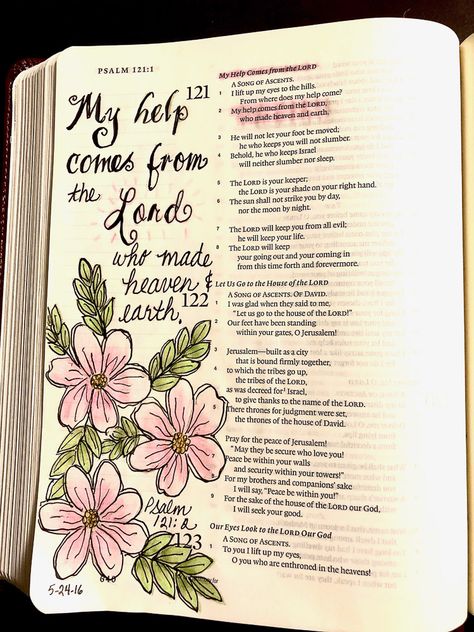 PSALM 121:1
My help
comes from
the Lord
who made
heaven &
earth.
Psalm
121:2
5-24-16
640
My Help Comes from the LORD
121
A SONG OF ASCENTS.
1 I lift up my eyes to the hills.
From where does my help come?
2 My help comes from the LORD,
who made heaven and earth.
3 He will not let your foot be moved;
he who keeps you will not slumber.
4 Behold, he who keeps Israel
will neither slumber nor sleep.
5 The LORD is your keeper;
the LORD is your shade on your right hand.
6 The sun shall not strike you by day,
nor the moon by night.
7 The LORD will keep you from all evil;
he will keep your life.
8 The LORD will keep
your going out and your coming in
from this time forth and forevermore.
Let Us Go to the House of the LORD
122
A SONG OF ASCENTS. OF DAVID.
1 I was glad when they said to me,
“Let us go to the house of the LORD!”
2 Our feet have been standing
within your gates, O Jerusalem!
3 Jerusalem—built as a city
that is bound firmly together,
4 to which the tribes go up,
the tribes of the LORD,
as was decreed for¹ Israel,
to give thanks to the name of the LORD.
5 There thrones for judgment were set,
the thrones of the house of David.
Pray for the peace of Jerusalem!
“May they be secure who love you!
7 Peace be within your walls
and security within your towers!”
8 For my brothers and companions’ sake
I will say, “Peace be within you!”
9 For the sake of the house of the LORD our God,
I will seek your good.
Our Eyes Look to the LORD Our God
123
A SONG OF ASCENTS.
1 To you I lift up my eyes,
O you who are enthroned in the heavens!